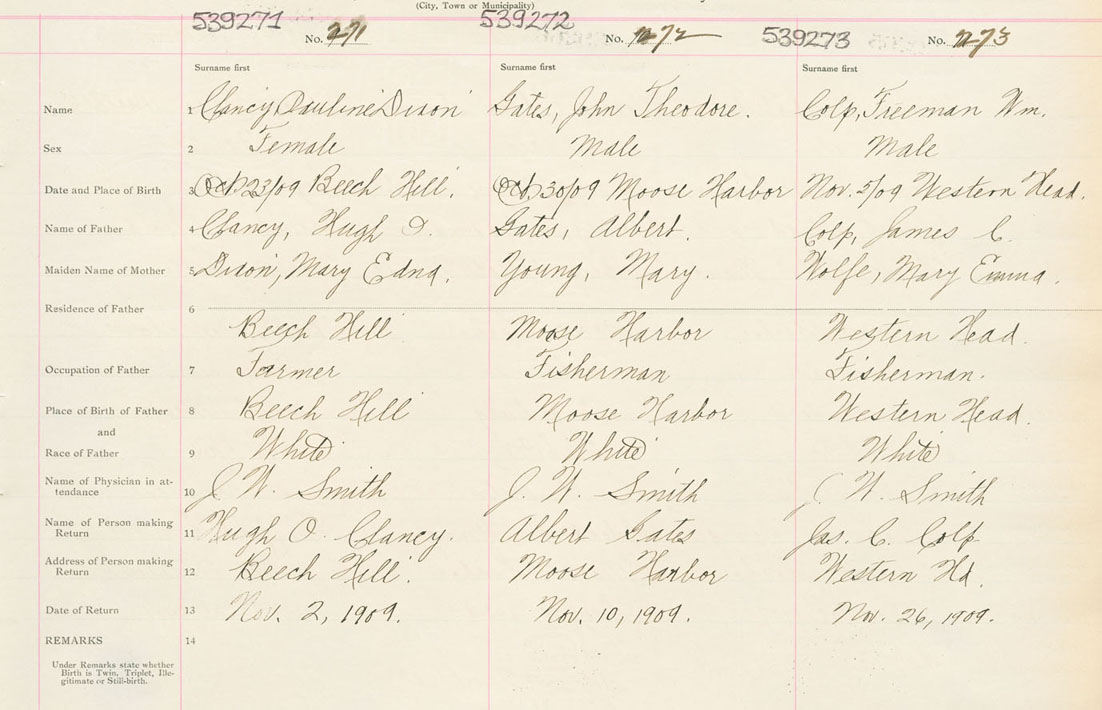 (City, Town or Municipality)
539271 539272 539273
No. 271 No. 272 No. 273
Surname first Surname first Surname first
Name 1 Clancy, Pauline Dixon Gates, John Theodore. Colp, Freeman Wm.
Sex 2 Female Male Male
Date and Place of Birth 3 Oct 23/09 Beech Hill. Oct 30/09 Moose Harbor Nov. 5/09 Western Head.
Name of Father 4 Clancy, Hugh O. Gates, Albert. Colp, James C.
Maiden Name of Mother 5 Dixon, Mary Edna. Young, Mary. Wolfe, Mary Emma.
Residence of Father 6
Beech Hill Moose Harbor Western Head.
Occupation of Father 7 Farmer Fisherman Fisherman.
Place of Birth of Father 8 Beech Hill Moose Harbor Western Head.
and
Race of Father 9 White White White
Name of Physician in at-
tendance 10 J. W. Smith J. W. Smith J. W. Smith
Name of Person making
Return 11 Hugh O. Clancy. Albert Gates Jas. C. Colp
Address of Person making
Return 12 Beech Hill. Moose Harbor Western Hd.
Date of Return 13 Nov. 2, 1909. Nov. 10, 1909. Nov. 26, 1909.
REMARKS 14
Under Remarks state whether
Birth is Twin, Triplet, Ille-
gitimate or Still-birth.